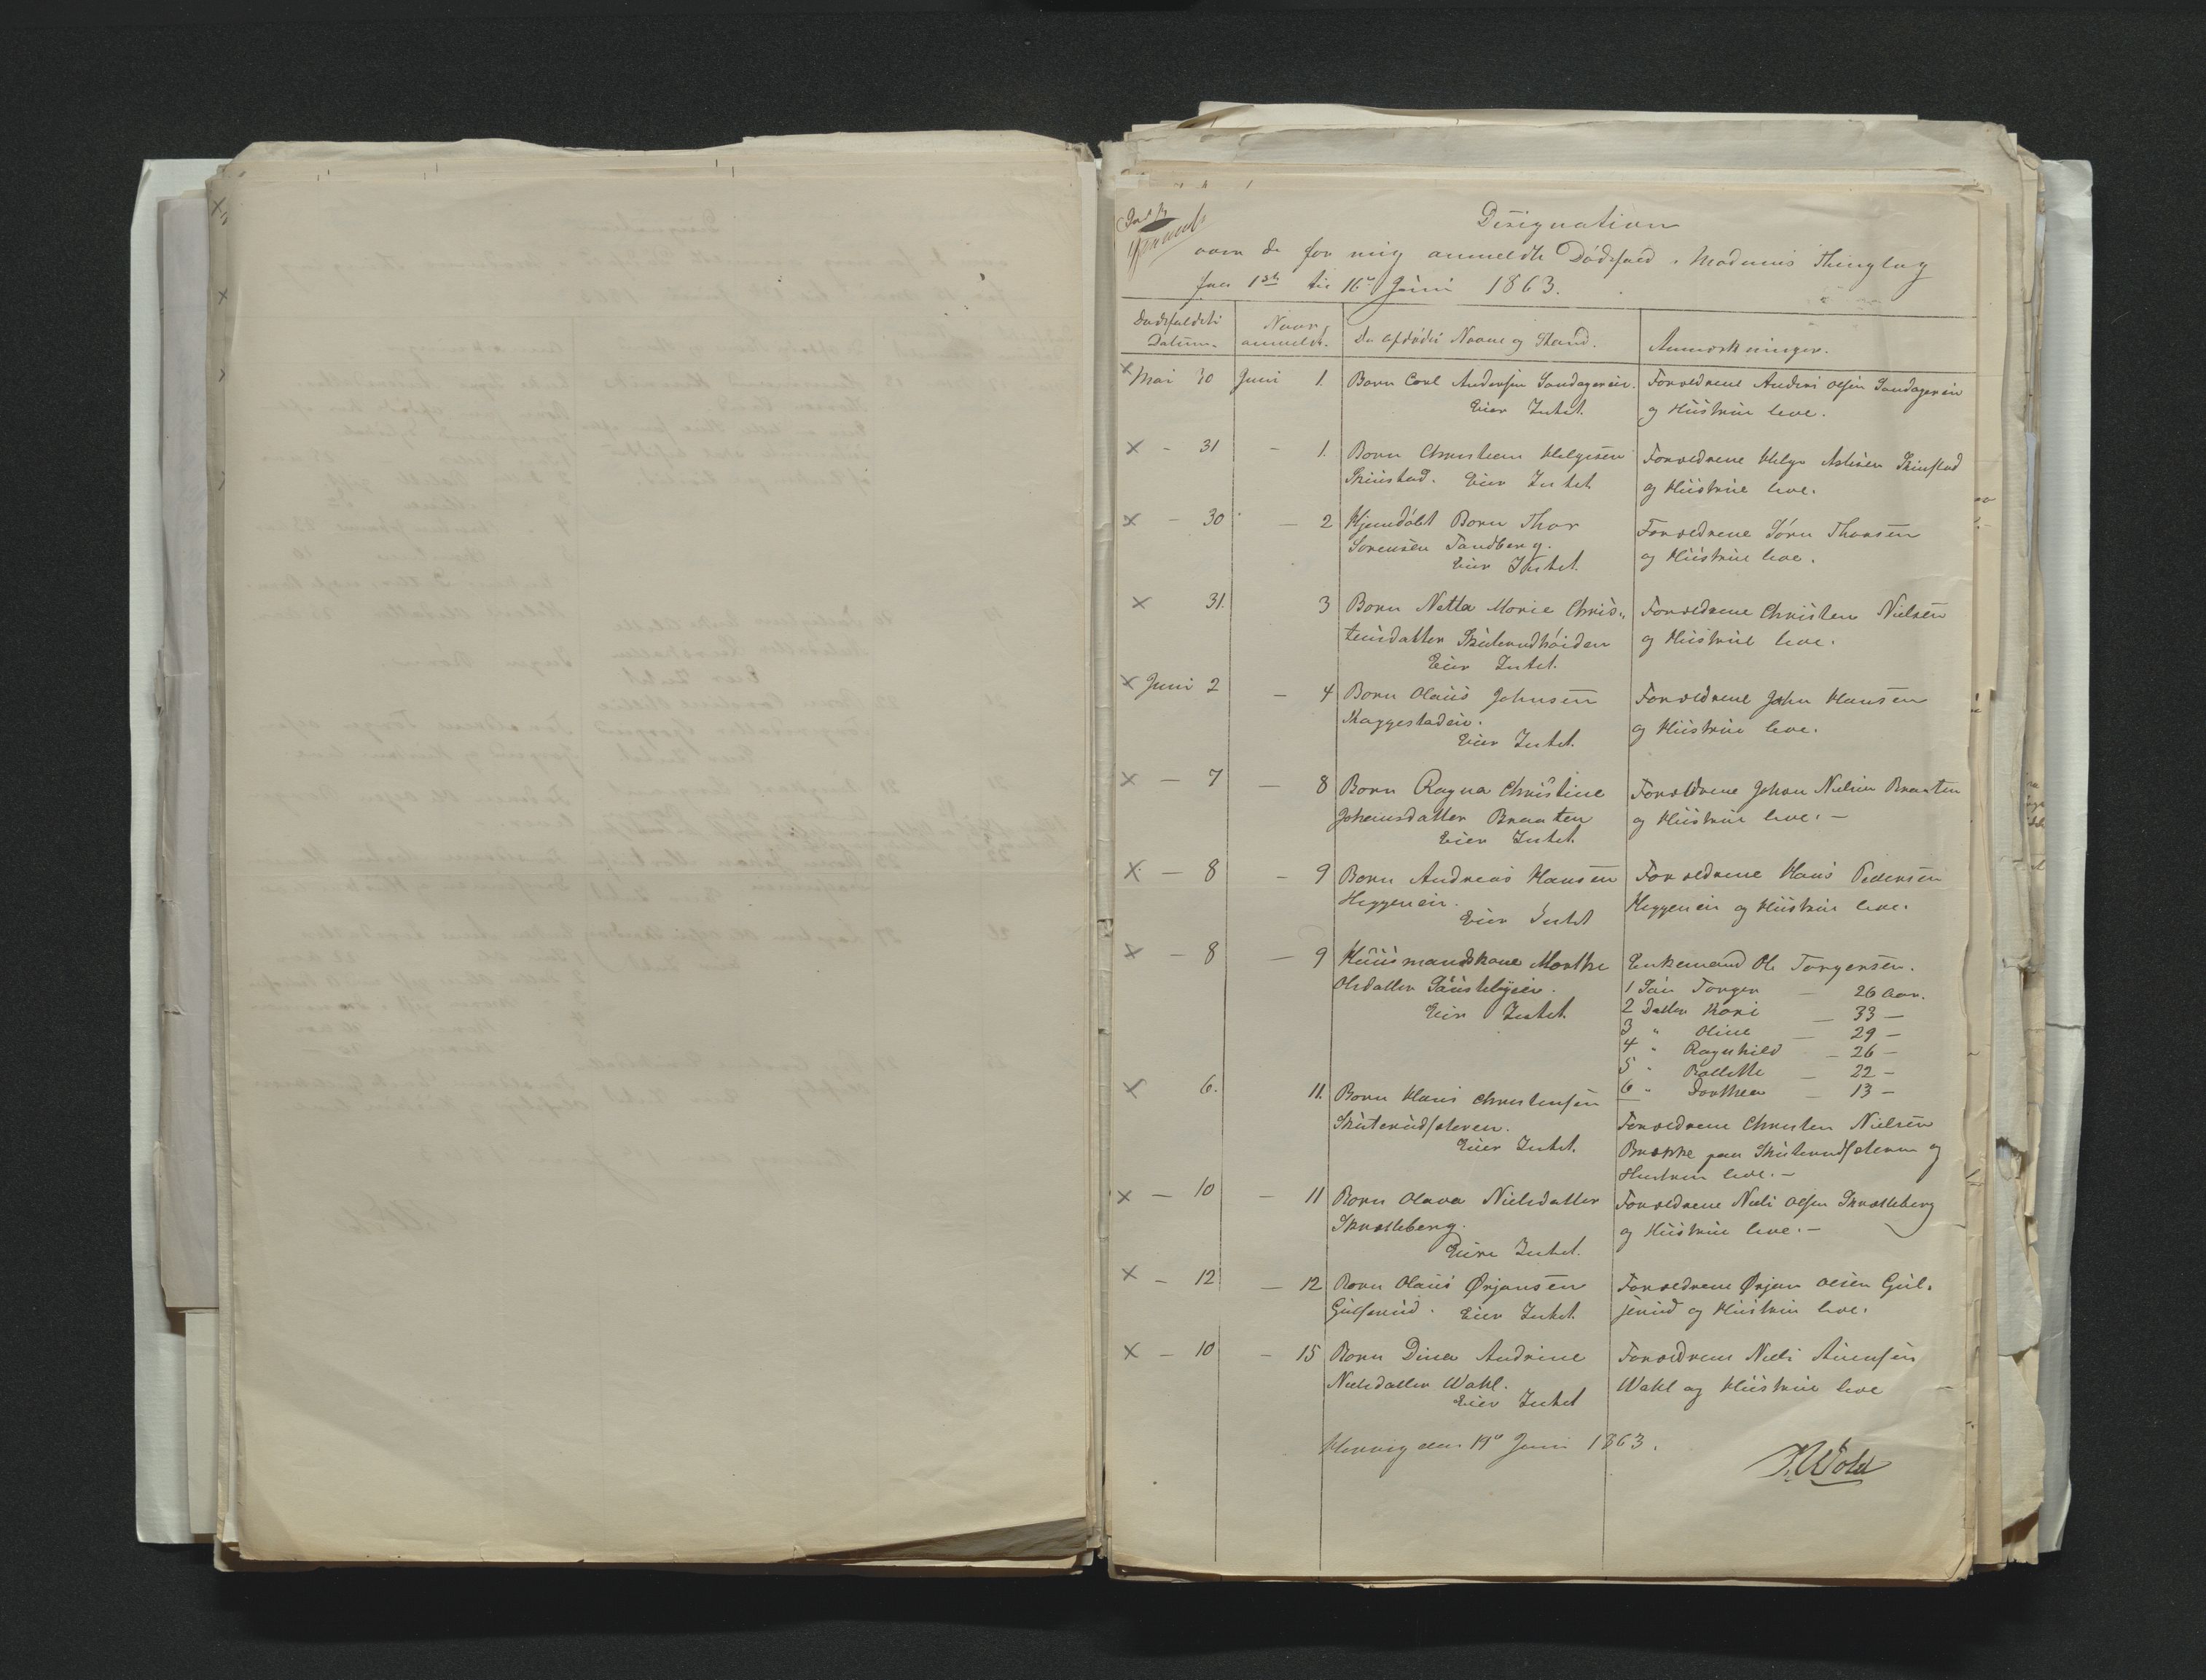 Designation
over de for mig anmeldte Dødsfald i Modums Thinglag
fra 1ste til 16de Juni 1863.
Dødsfaldets Datum. Naar anmeldt. De afdødes Navne og Stand. Anmærkninger.
Mai 30 Juni 1. Barn Carl Andersen Sandagereie. Forældrene Anders Olsen Sandagereie
Eier Intet. og Hustrue leve.
- 31 - 1. Barn Christian Helgesen Forældrene Helge Aslesen Skinstad
Skinstad. Eier Intet og Hustrue leve.
- 30 - 2 Hjemdøbt Barn Thor Forældrene Søren Thorsen
Sorensen Tandberg. og Hustrue leve.
Eier Intet.
31. 3 Barn Netta Marie Chris- Forældrene Christen Nielsen
tensdatter Skuterudhøiden og Hustrue leve.
Eier Intet.
Juni 2 - 4 Barn Olaus Johnsen Forældrene John Hansen
Kaggestadeie. og Hustrue leve.
Eier Intet.
- 7 - 8 Barn Ragna Christine Forældrene Johan Nielsen Braaten
Johansdatter Braaten og Hustrue leve. -
Eier Intet.
- 8 - 9 Barn Andreas Hansen Forældrene Hans Pedersen
Heggeneie. Heggeneie og Hustrue leve.
Eier Intet
- 8 - 9 Huusmandskone Marthe Enkemand Ole Torgersen.
Olsdatter Sønstebyeie. 1 Søn Torger - 26 Aar.
Eier Intet. 2 Datter Kari - 33 -
3 " Oline - 29 -
4 " Ragnhild - 26 -
5 " Kollette - 22 -
6 " Dorthea - 13 -
6. 11. Barn Hans Christensen Forældrene Christen Nielsen
Skuterudsæteren. Brække paa Skuterudsæteren og
Eier Intet. Hustrue leve. -
- 10 - 11 Barn Olava Nielsdatter Forældrene Niels Olsen Skrætteberg
Skrætteberg. og Hustrue leve. -
Eier Intet.
- 12 - 12 Barn Olaus Ørjansen Forældrene Ørjan Olsen Gul-
Gulserud. Eier Intet. serud og Hustrue leve.
- 10 - 15 Barn Dina Andrine Forældrene Niels Anensen
Nielsdatter Wahl. Wahl og Hustrue leve
Eier Intet
den 19de Juni 1863.
Wold